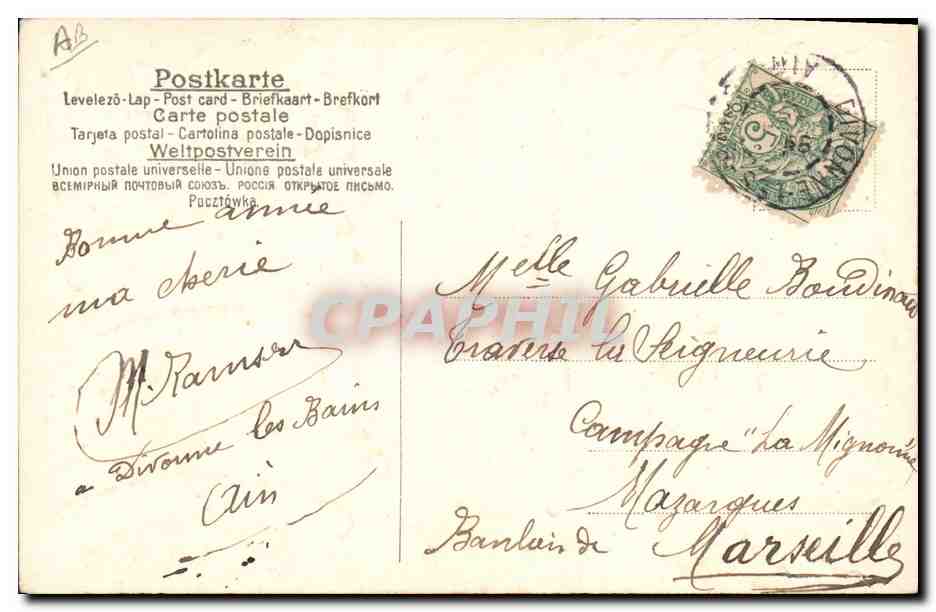 AB
Postkarte
Levelező-Lap - Post card - Briefkaart - Brefkort
Carte postale
Tarjeta postal - Cartolina postale - Dopisnice
Weltpostverein
Union postale universelle - Unione postale universale
ВСЕМІРНЫЙ ПОЧТОВЫЙ СОЮЗЪ. РОССІЯ. ОТКРЫТОЕ ПИСЬМО.
Pocztówka
Bonne année
ma cherie
M. Ramsen
a Divonne les Bains
Ain
AIN
DIVONNE-LES
5
Melle Gabrielle Boudinau
Traverse la Seigneurie
Campagne "La Mignonne
Mazargues
Banlieue de Marseille
CPAPHIL